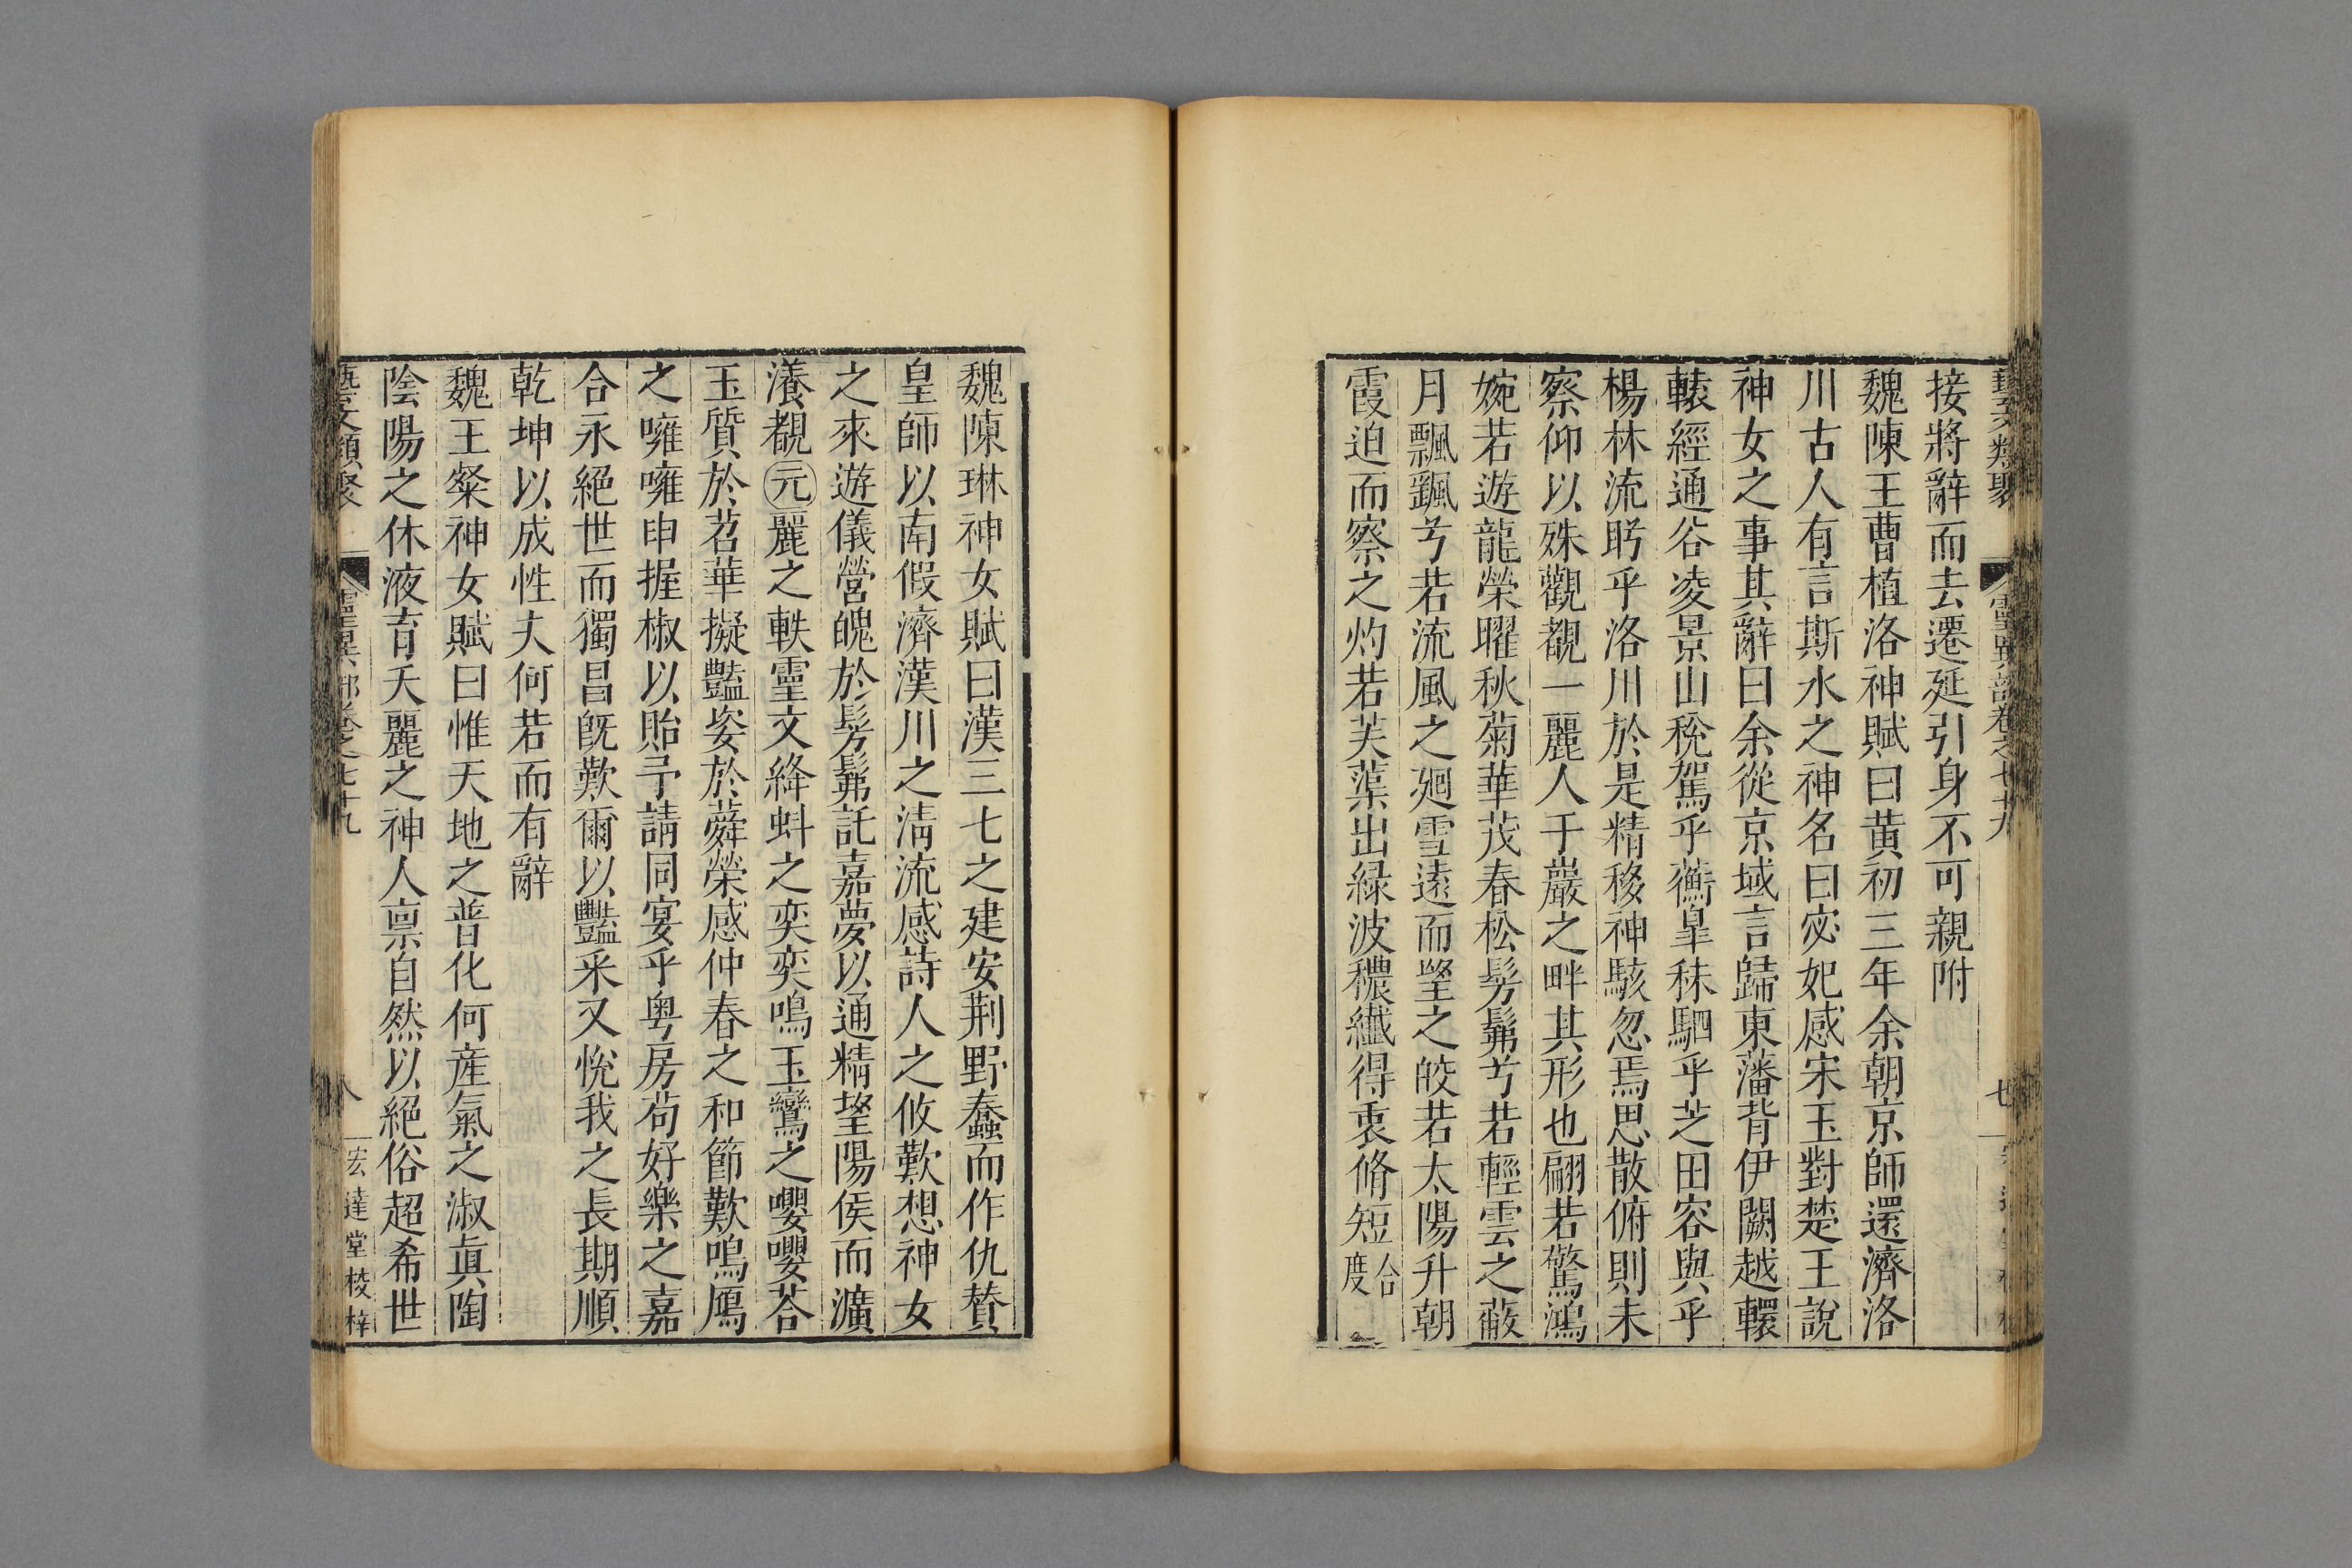 藝文類聚 靈異部卷之七十九 七
接將辭而去遷延引身不可親附
魏陳王曹植洛神賦曰黃初三年余朝京師還濟洛
川古人有言斯水之神名曰宓妃感宋玉對楚王說
神女之事其辭曰余從京域言歸東藩背伊闕越轘
轅經通谷凌景山稅駕乎蘅臯秣駟乎芝田容與乎
楊林流眄乎洛川於是精移神駭忽焉思散俯則未
察仰以殊觀覩一麗人于巖之畔其形也翩若驚鴻
婉若遊龍榮曜秋菊華茂春松髣髴兮若輕雲之蔽
月飄颻兮若流風之廻雪遠而望之皎若太陽升朝
霞迫而察之灼若芙蕖出綠波穠纖得衷脩短合度
魏陳琳神女賦曰漢三七之建安荆野蠢而作仇贊
皇師以南假濟漢川之淸流感詩人之攸歎想神女
之來遊儀營魄於髣髴託嘉夢以通精望陽侯而瀇
瀁覩元麗之軼靈文絳虯之奕奕鳴玉鸞之嚶嚶荅
玉質於苕華擬豔姿於蕣榮感仲春之和節歎鳴鴈
之嗈嗈申握椒以貽予請同宴乎粤房苟好樂之嘉
合永絕世而獨昌旣歎爾以豔采又恱我之長期順
乾坤以成性夫何若而有辭
魏王粲神女賦曰惟天地之普化何産氣之淑眞陶
陰陽之休液育夭麗之神人禀自然以絕俗超希世
藝文類聚 靈異部卷之七十九 八 宏達堂棱梓